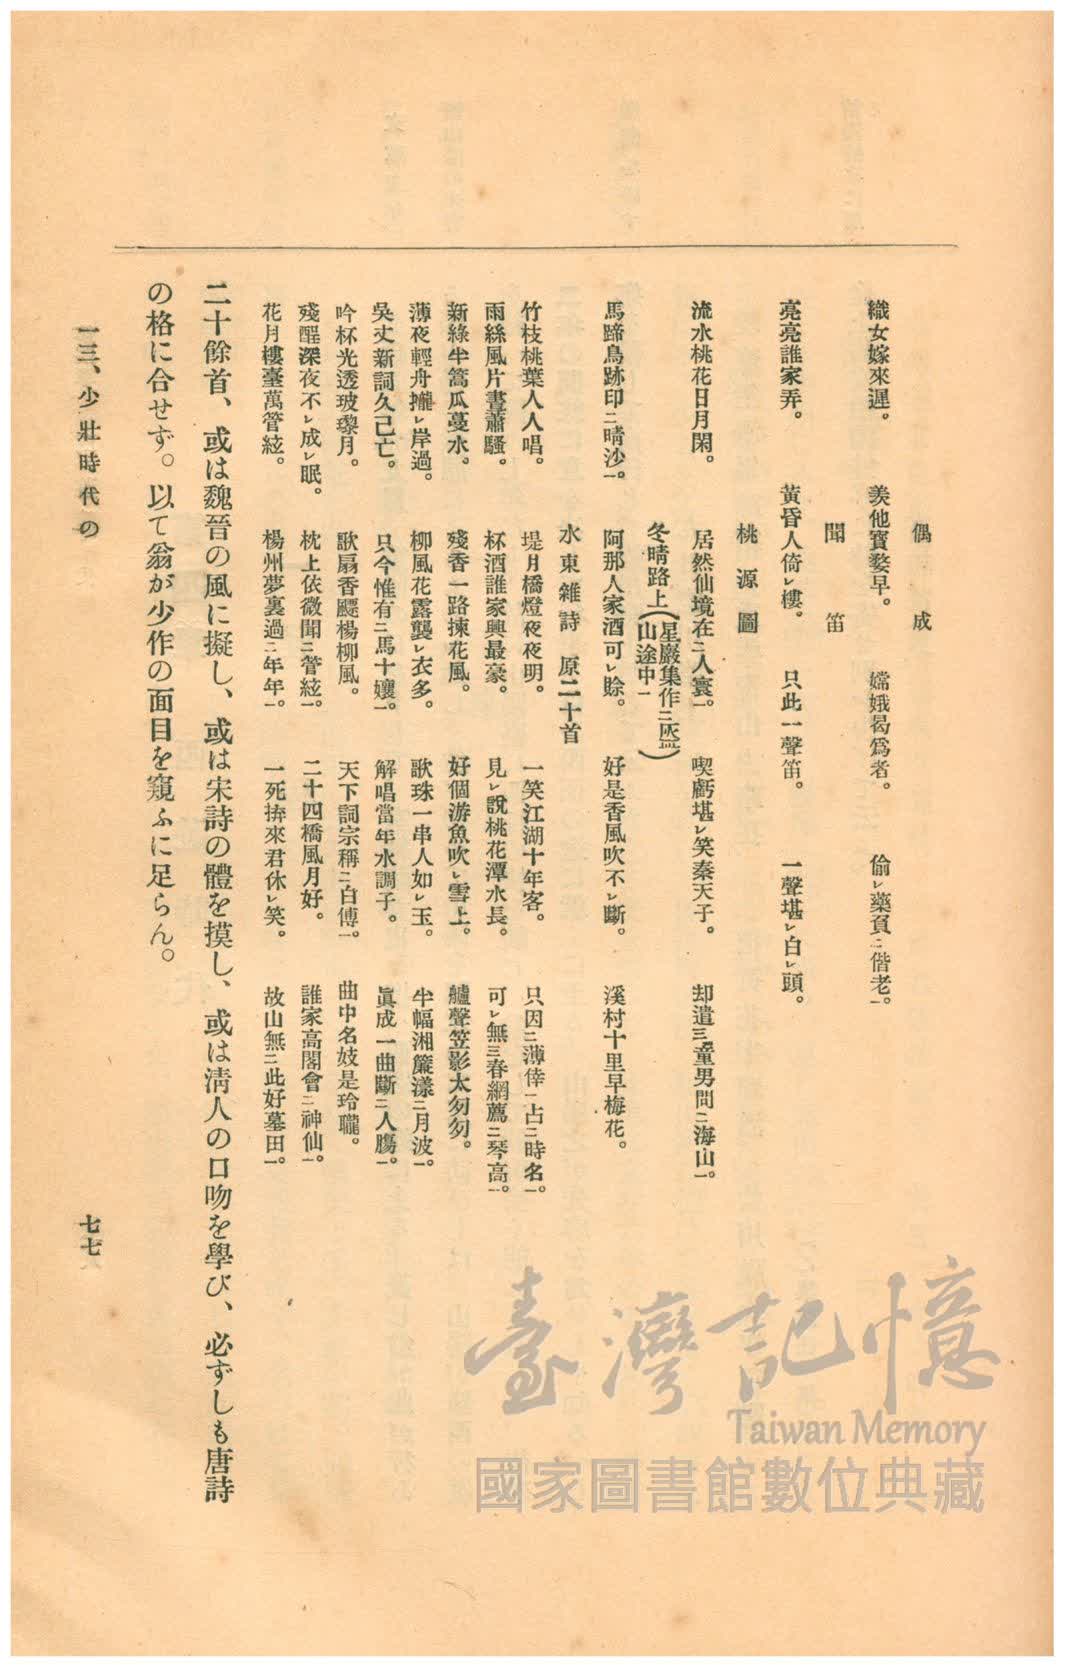 偶成
織女嫁來遲。 羨他寶婺早。 嫦娥曷爲者。 偷レ藥負ニ偕老一。
聞笛
亮亮誰家弄。 黃昏人倚レ樓。 只此一聲笛。 一聲堪レ白レ頭。
桃源圖
流水桃花日月閑。 居然仙境在ニ人寰一。 喫虧堪レ笑秦天子。 却遣三童男問ニ海山一。
冬晴路上(星巖集作ニ灰 山途中一)
馬蹄鳥跡印ニ晴沙一。 阿那人家酒可レ賒。 好是香風吹不レ斷。 溪村十里早梅花。
水東雜詩 原二十首
竹枝桃葉人人唱。 堤月橋燈夜夜明。 一笑江湖十年客。 只因ニ薄倖一占ニ時名一。
雨絲風片晝蕭騷。 杯酒誰家興最豪。 見レ說桃花潭水長。 可レ無三春網薦ニ琴高一。
新綠半篙瓜蔓水。 殘香一路揀花風。 好個游魚吹レ雪上。 艫聲笠影太匆匆。
薄夜輕舟攏レ岸過。 柳風花露襲レ衣多。 歌珠一串人如レ玉。 半幅湘簾漾ニ月波一。
吳丈新詞久已亡。 只今惟有ニ馬十孃一。 解唱當年水調子。 眞成一曲斷ニ人膓一。
吟杯光透玻瓈月。 歌扇香颺楊柳風。 天下詞宗稱ニ白傅一。 曲中名妓是玲瓏。
殘酲深夜不レ成レ眠。 枕上依微聞ニ管絃一。 二十四橋風月好。 誰家高閣會ニ神仙一。
花月樓臺萬管絃。 楊州夢裏過ニ年年一。 一死拚來君休レ笑。 故山無ニ此好墓田一。
二十餘首、或は魏晉の風に擬し、或は宋詩の體を摸し、或は淸人の口吻を學び、必ずしも唐詩
の格に合せず。以て翁が少作の面目を窺ふに足らん。
一三、少壯時代の
七七
臺灣記憶
Taiwan Memory
國家圖書館數位典藏